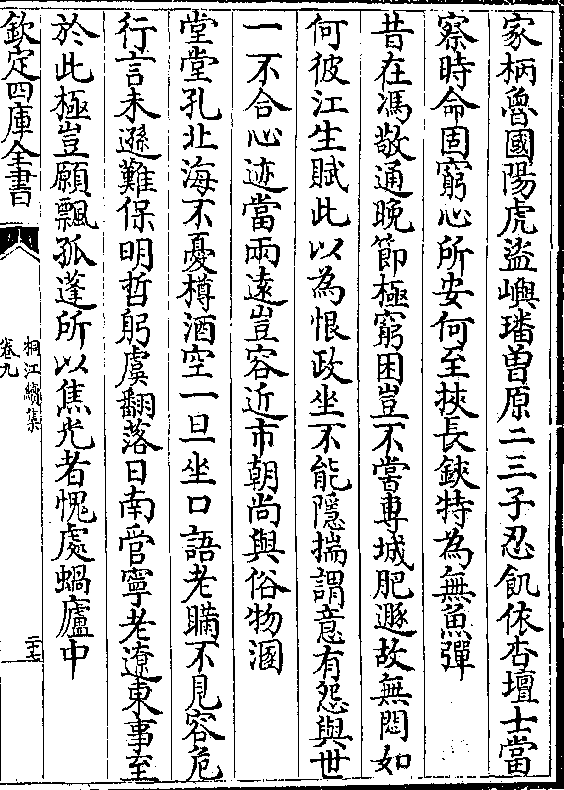 家柄魯國陽虎盜嶼璠曽原二三子忍飢依杏壇士當
察時命固窮心所安何至挾長鋏特為無魚彈
昔在馮敬通晚節極窮困豈不嘗專城肥遯故無悶如
何彼江生賦此以為恨政坐不能隱揣謂意有怨與世
一不合心迹當兩遠豈容近市朝尚與俗物溷
堂堂孔北海不憂樽酒空一旦坐口語老瞞不見容危
行言未遜難保明哲躬虞翻落日南管寧老遼東事至
於此極豈願飄孤蓬所以焦光者愧處蝸廬中
欽定四庫全書
桐江續集
卷九
二十七